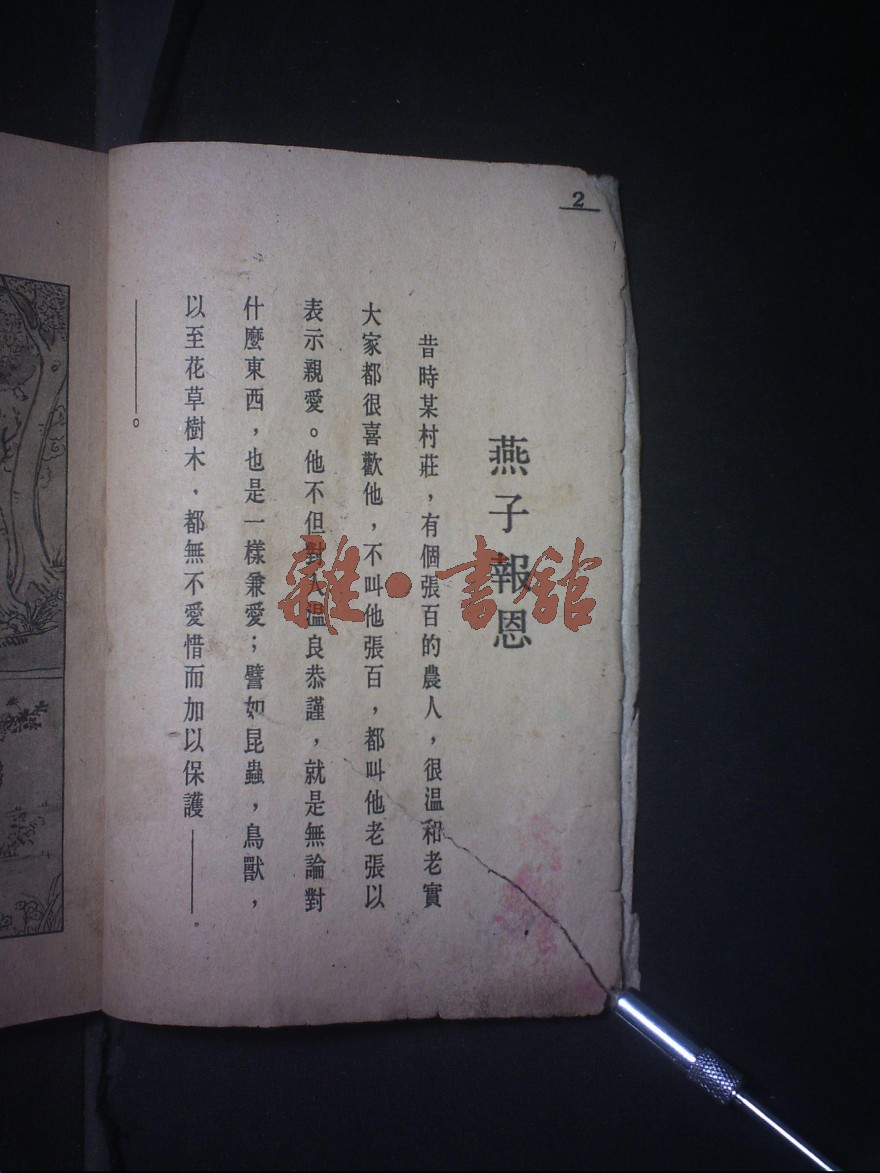 2
燕子報恩
昔時某村莊，有個張百的農人，很温和老實
大家都很喜歡他，不叫他張百，都叫他老張以
表示親愛。他不但對人温良恭謹，就是無論對
什麼東西，也是一樣兼愛；譬如昆蟲，鳥獸，
以至花草樹木，都無不愛惜而加以保護——。
——。
雜·書館